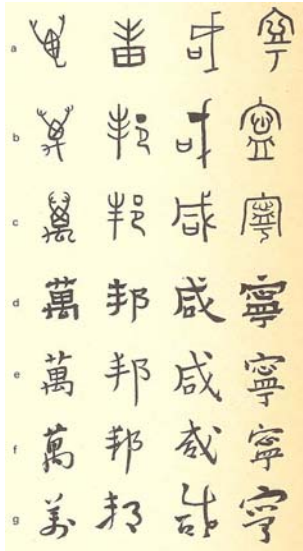 a 萬 邦 咸 寧
b 萬 邦 咸 寧
c 萬 邦 咸 寧
d 萬 邦 咸 寧
e 萬 邦 咸 寧
f 萬 邦 咸 寧
g 萬 邦 咸 寧